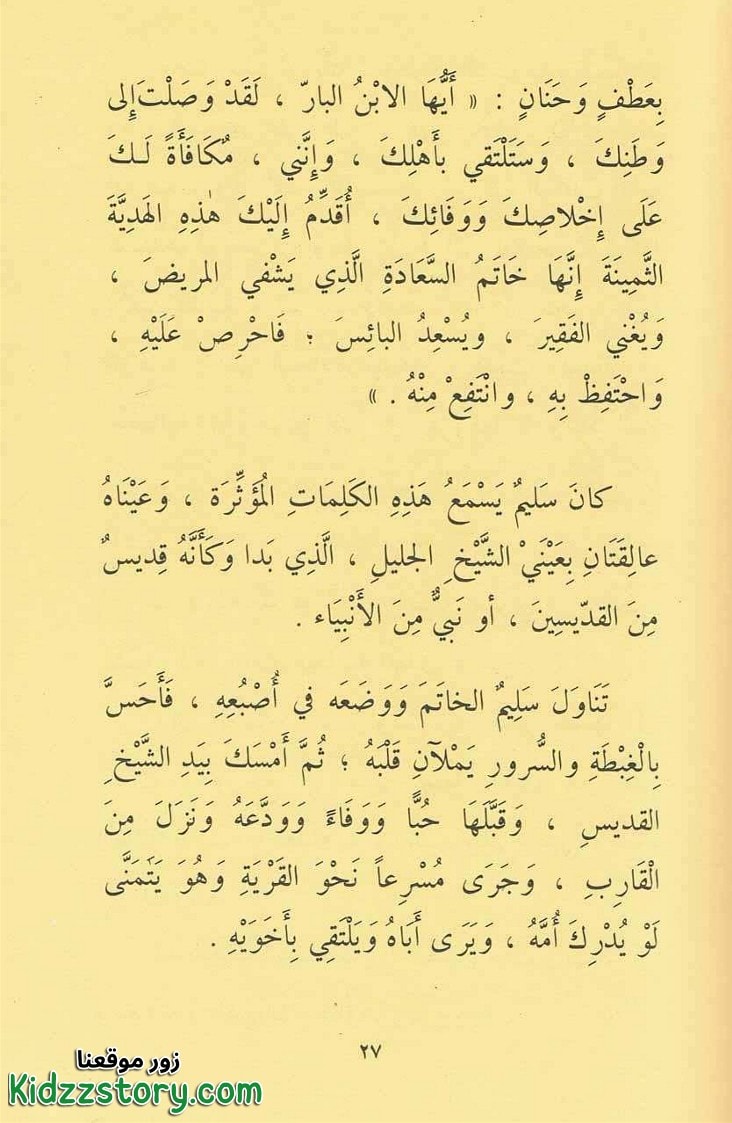 بِعَطْفٍ وَحَنَانٍ : « أَيُّهَا الابْنُ البارّ ، لَقَدْ وَصَلْتَ إِلى
وَطَنِكَ ، وَسَتَلْتَقي بأَهْلِكَ ، وَإِنَّني ، مُكَافَأَةً لَـكَ
عَلَى إِخْلاصِكَ وَوَفَائِكَ ، أُقَدِّمُ إِلَيْكَ هٰذِهِ الهَدِيَّةَ
الثَّمِينَةَ إِنَّهَا خَاتَمُ السَّعَادَةِ الَّذِي يَشْفي المريضَ ،
وَيُغْني الفَقِيرَ ، ويُسْعِدُ البائِسَ ؛ فَاحْرِصْ عَلَيْهِ ،
وَاحْتَفِظْ بِهِ ، وانْتَفِعْ مِنْهُ . »
كانَ سَليمٌ يَسْمَعُ هَذِهِ الكَلِمَاتِ المُؤَثِّرَة ، وَعَيْنَاهُ
عالِقَتَانِ بِعَيْنَيْ الشَّيْخِ الجليلِ ، الَّذِي بَدا وَكَأَنَّهُ قِديسٌ
مِنَ القدّيسِينَ ، أو نَبيٌّ مِنَ الأَنْبِيَاء .
تَنَاوَلَ سَلِيمٌ الخاتَمَ وَوَضَعَه في أُصْبُعِهِ ، فَأَحَسَّ
بِالْغِبْطَةِ والسُّرورِ يَمْلآنِ قَلْبَهُ ؛ ثُمَّ أَمْسَكَ بِيَدِ الشَّيْخِ
القديسِ ، وَقَبَّلَهَا حُبًّا وَوَفَاءً وَوَدَّعَهُ وَنَزَلَ مِنَ
الْقَارِبِ ، وَجَرَى مُسْرِعاً نَحْوَ القَرْيَةِ وَهُوَ يَتَمَنَّى
لَوْ يُدْرِكَ أُمَّهُ ، وَيَرَى أَبَاهُ وَيَلْتَقِي بِأَخَوَيْهِ .
٢٧
زور موقعنا
Kidzzstory.com